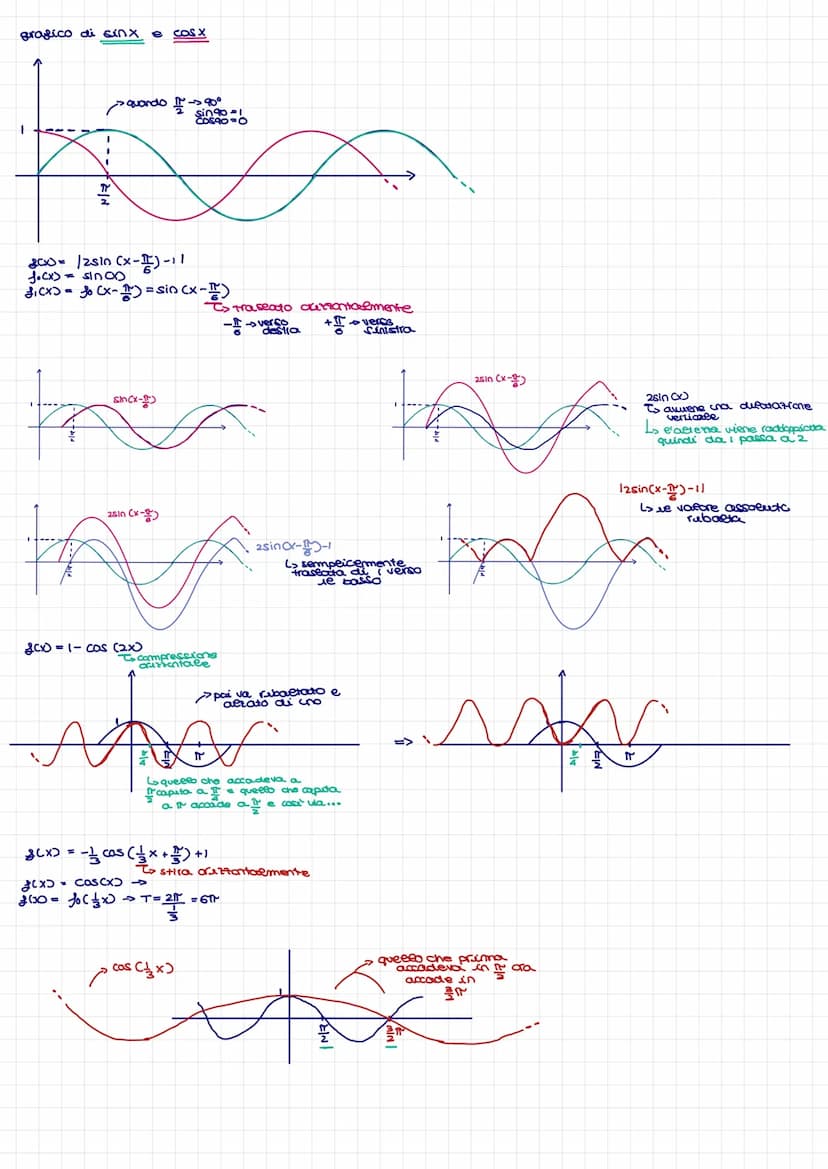 grafico di sinx e cosx
quando π/2 → 90°
sin90=1
cos90=0
1
π/2
f(x)= |2sin(x-π/6)-1|
f₀(x) = sin(x)
f₁(x) = f₀(x-π/6)=sin(x-π/6)
↳ traslato orizzontalmente
-π/6 → verso destra
+π/6 → verso sinistra
sin(x-π/6)
1
2sin(x-π/6)
1
2sin(x)
↳ avviene una dilatazione
verticale
↳ l'altezza viene raddoppiata
quindi da 1 passa a 2
2sin(x-π/6)
1
2sin(x-π/6)-1
↳ semplicemente
traslata di 1 verso
il basso
|2sin(x-π/6)-1|
↳ il valore assoluto
ribalta
1
f(x) = 1- cos(2x)
↳ compressione
orizzontale
→ poi va ribaltato e
alzato di uno
1
π/4
π/2
π
↳ quello che accadeva a
π/2 capita a π/4 e quello che capita
a π accade a π/2 e così via...
=>
π/4
π/2
π
f(x) = -1/3 cos(1/3x + π/3) +1
↳ stira orizzontalmente
f(x) = cos(x) →
f(x) = f₀(1/3x) → T= 2π/(1/3) = 6π
→ cos(1/3x)
→ quello che prima
accadeva in π/2 ora
accade in
3/2π
1
π/2
3/2π